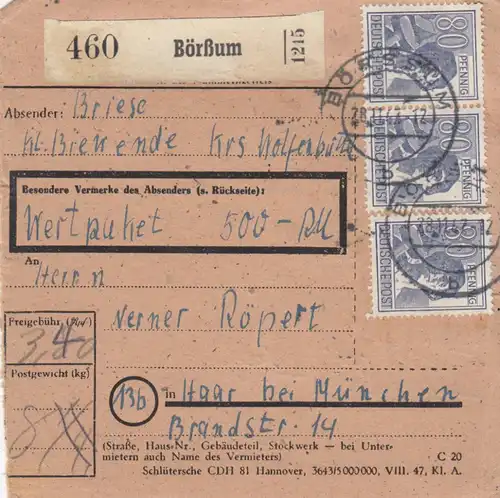 460 Börßum 1215
80 PFENNIG DEUTSCHE POST
80 PFENNIG DEUTSCHE POST
80 PFENNIG DEUTSCHE POST
BÖRSSUM
b
b
Absender: Briese
Kl. Biewende Krs Wolfenbüttel
Besondere Vermerke des Absenders (s. Rückseite):
Wertpaket 500,- RM
An
Herrn
Werner Röpert
Freigebühr
Postgewicht (kg)
13b in Haar bei München
Brandstr. 14
(Straße, Haus-Nr., Gebäudeteil, Stockwerk — bei Unter-
mietern auch Name des Vermieters) C 20
Schlütersche CDH 81 Hannover, 3643/5000000, VIII. 47, Kl. A.